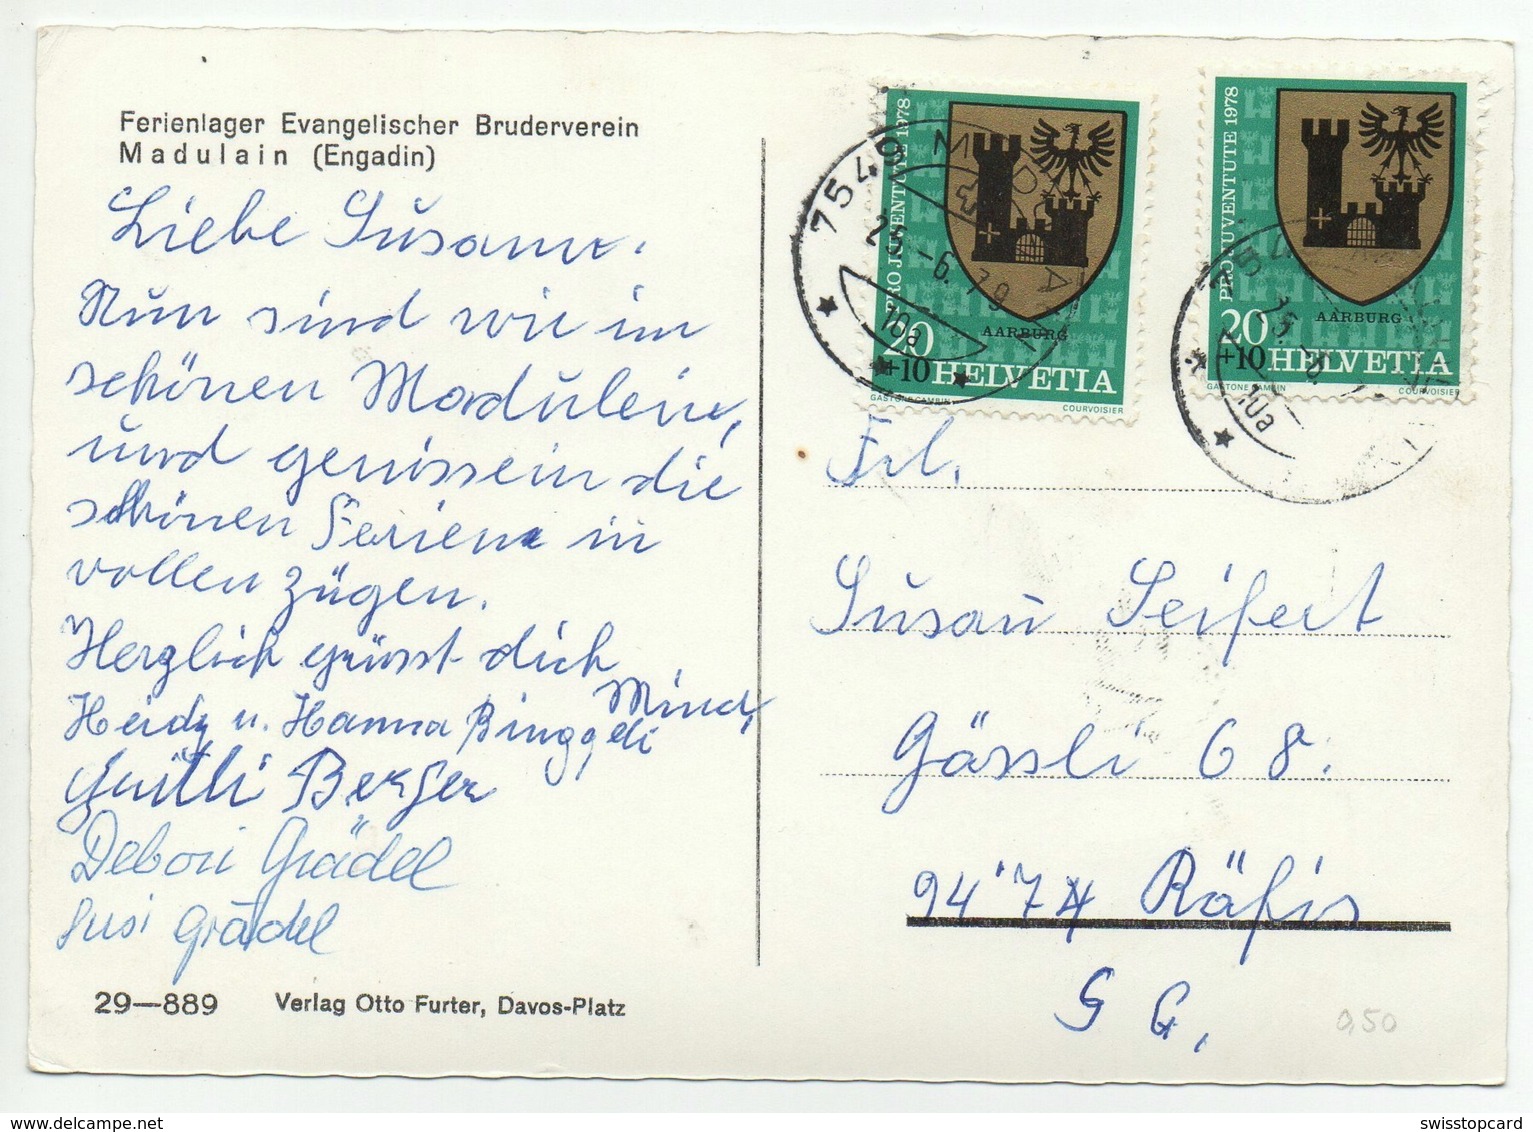 Ferienlager Evangelischer Bruderverein
Madulain (Engadin)
Liebe Susann.
Nun sind wir im
schönen Madulein,
und genissein die
schönen Ferien in
vollen zügen.
Herzlich grüsst dich
Heidy u. Hanna Binggeli
Berger
Debori Grädel
Susi Grädel
29—889 Verlag Otto Furter, Davos-Platz
PRO JUVENTUTE 1978
AARBURG
20
+10 HELVETIA
GASTONE CAMBIN COURVOISIER
PRO JUVENTUTE 1978
AARBURG
20
+10 HELVETIA
GASTONE CAMBIN COURVOISIER
7549
25.-6.79
10a
10a
Frl.
Susan Seifert
Gässli 68.
9474 Räfis
S G.
0,50
www.delcampe.net
swisstopcard